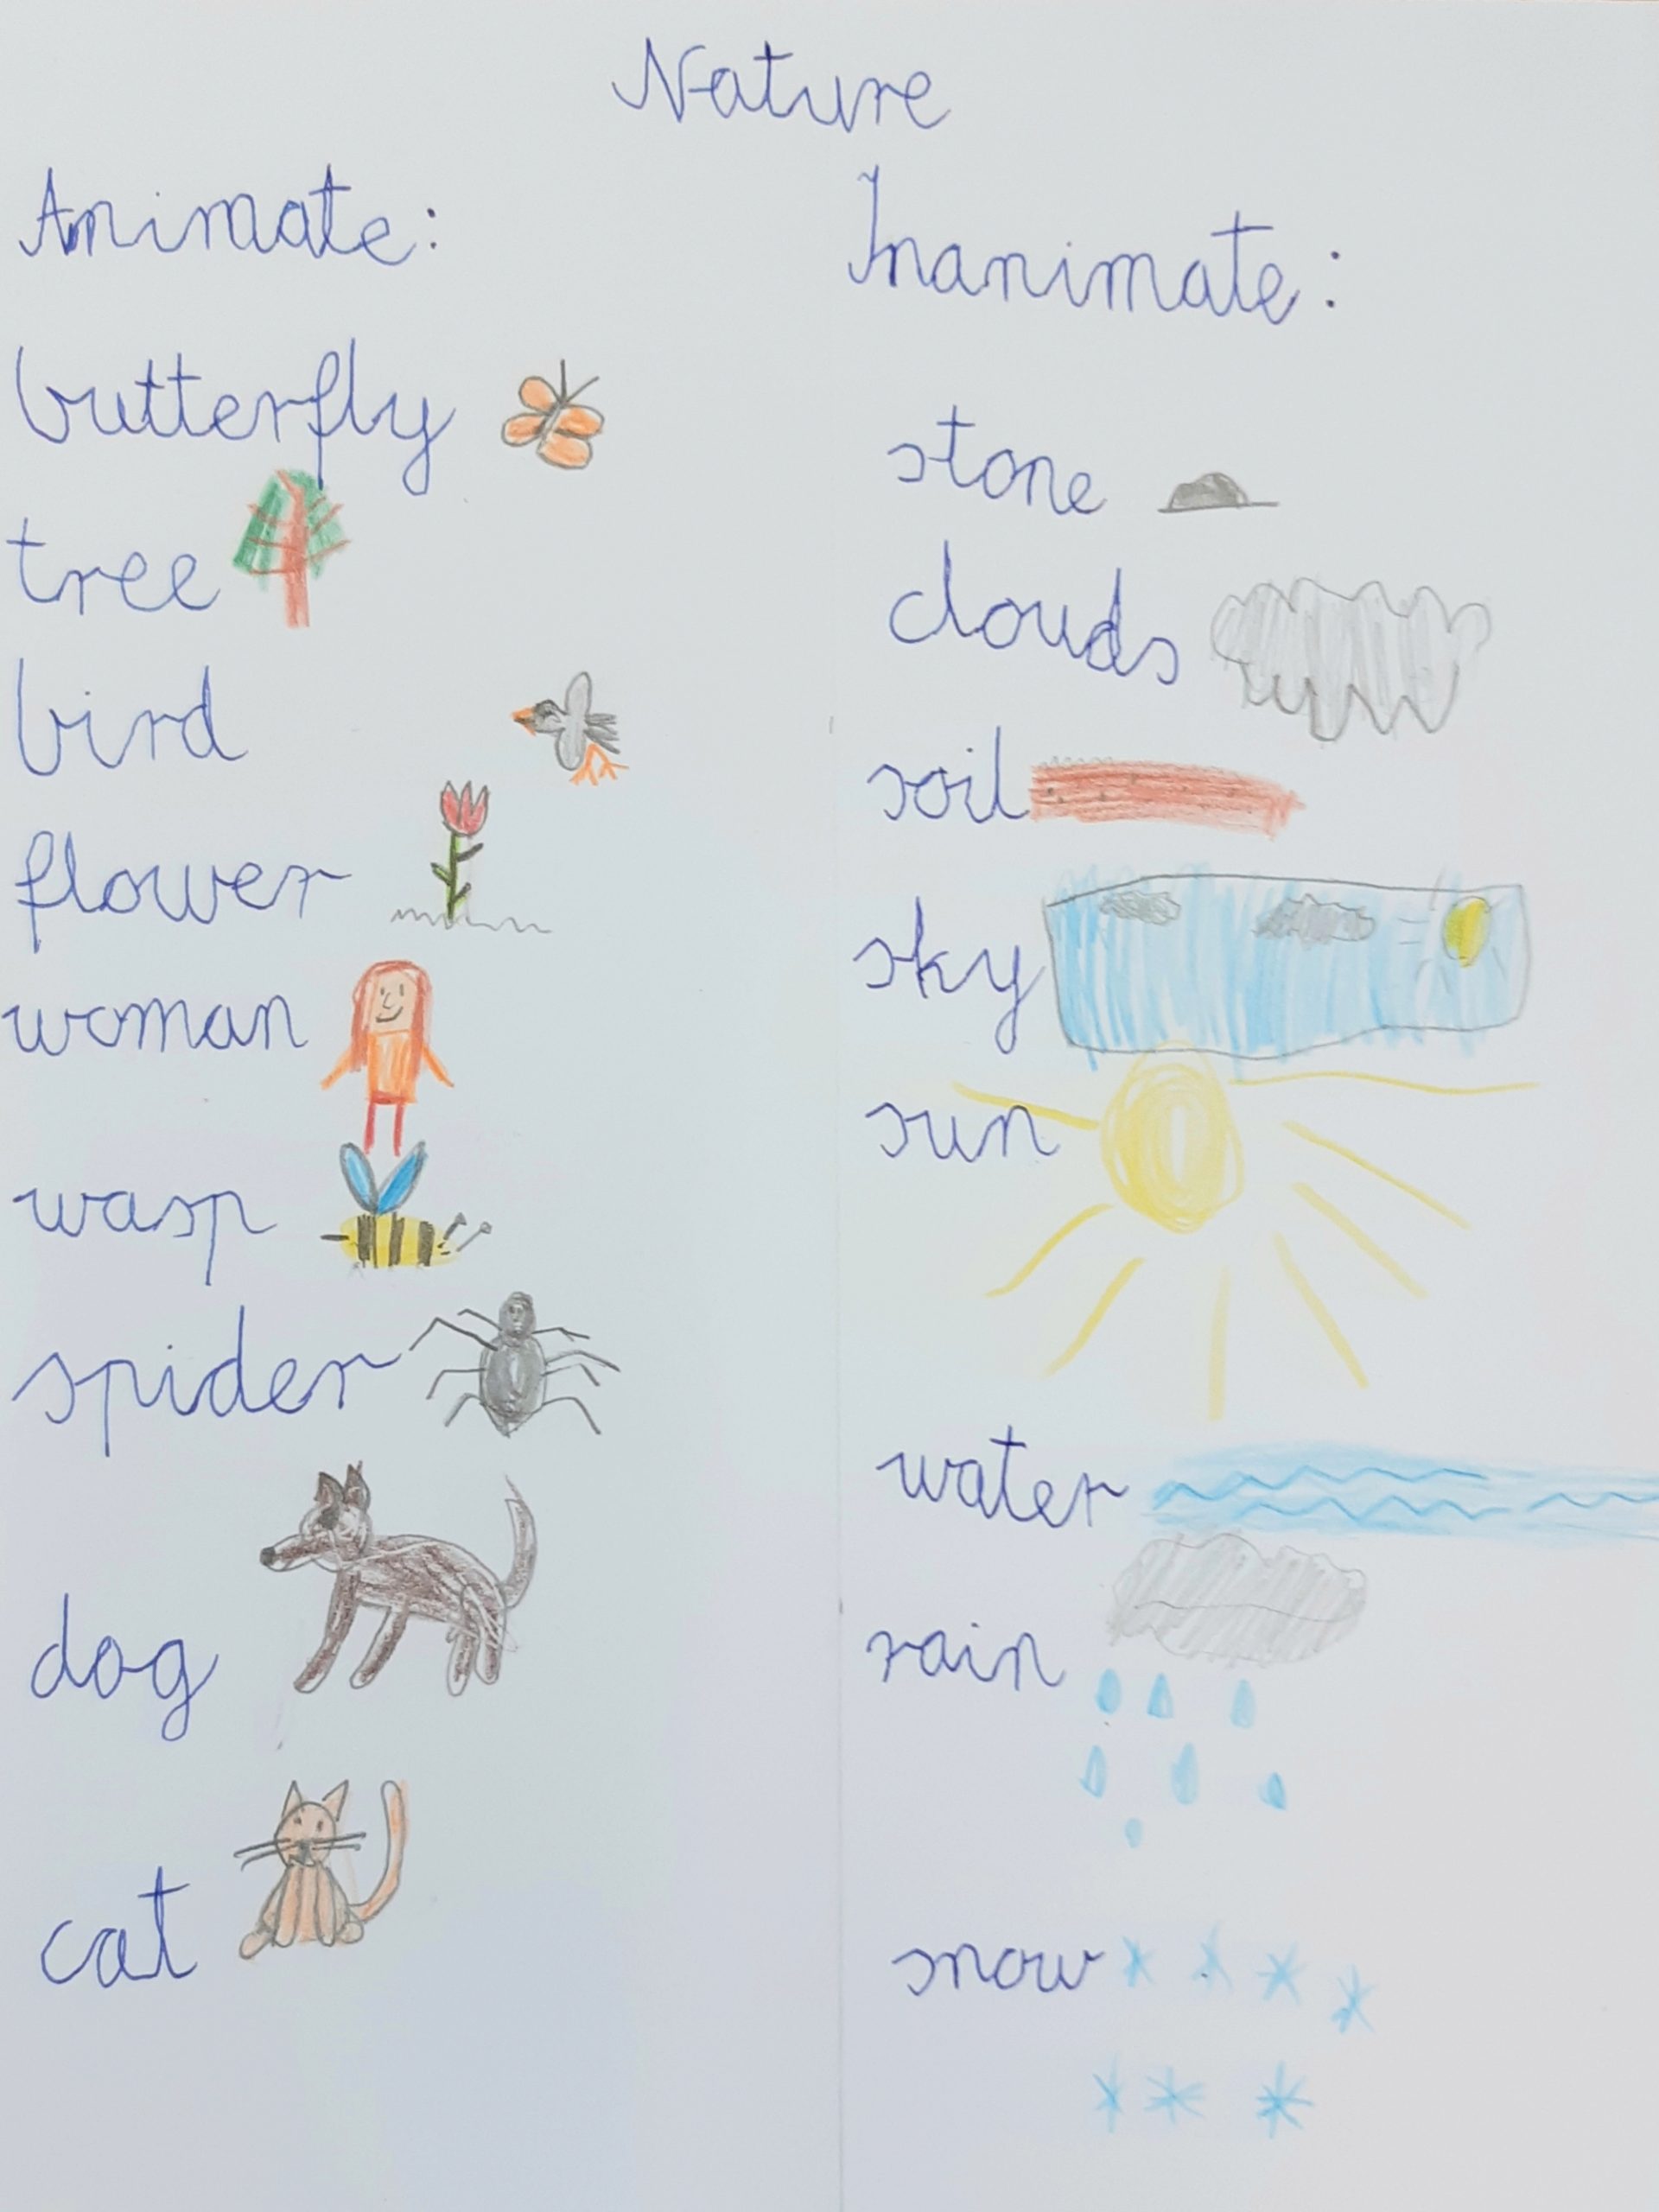 Nature
Animate:
butterfly
tree
bird
flower
woman
wasp
spider
dog
cat
Inanimate:
stone
clouds
soil
sky
sun
water
rain
snow